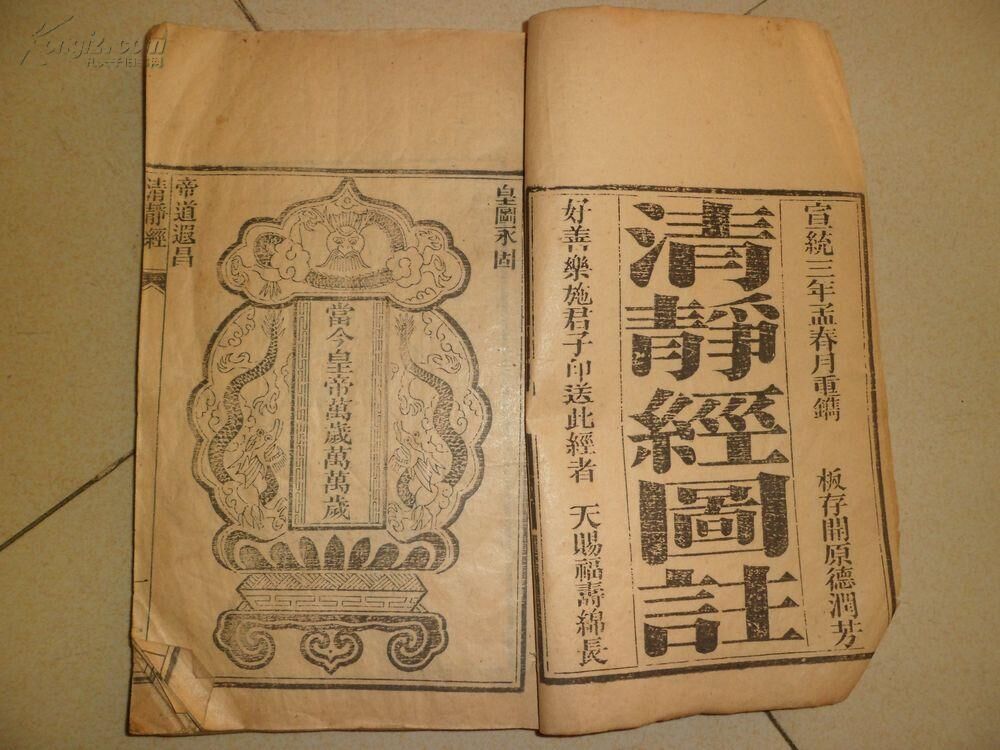 宣統三年孟春月重鐫 板存開原德潤芳
清靜經圖註
好善樂施君子印送此經者 天賜福壽綿長
皇圖永固
當今皇帝萬歲萬萬歲
帝道遐昌
清靜經
一
Kongfz.com
孔夫子旧书网